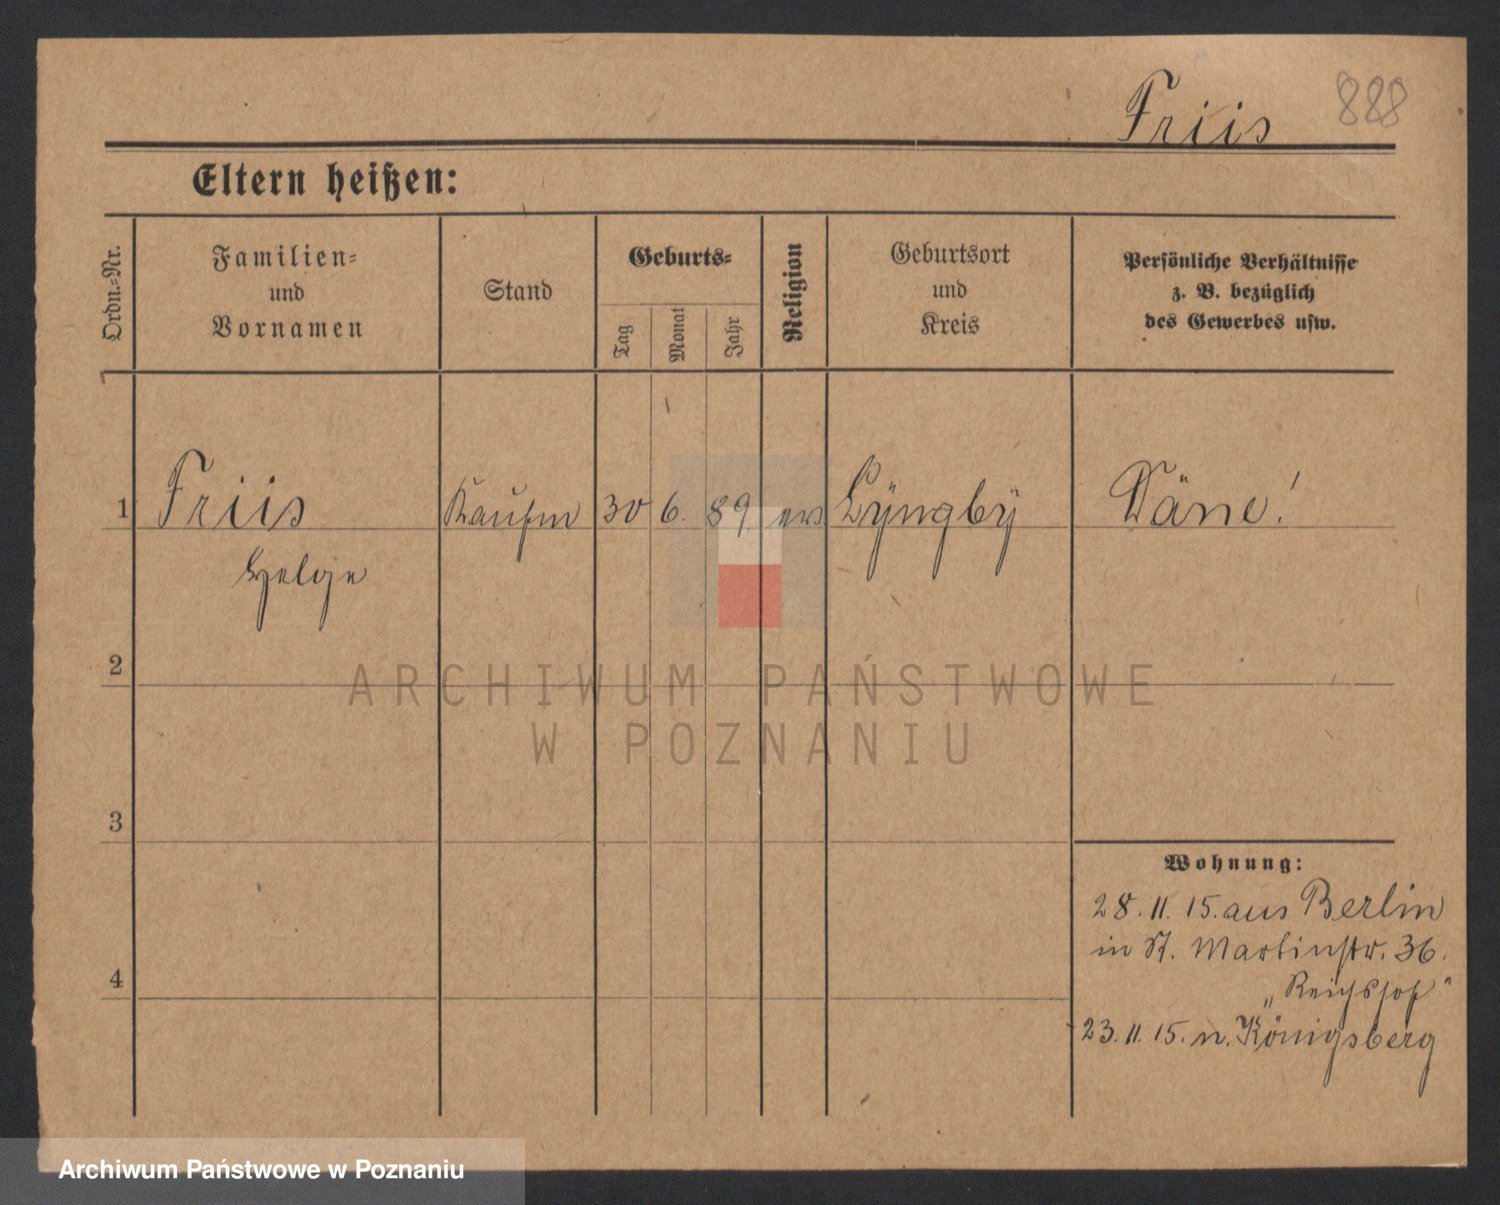 Friis 888
Eltern heißen:
Ordn.-Nr.
Familien-
und
Vornamen
Stand
Geburts-
Tag
Monat
Jahr
Religion
Geburtsort
und
Kreis
Persönliche Verhältnisse
z. B. bezüglich
des Gewerbes usw.
1 Friis Kaufm 30 6. 89 ev. Lÿngbÿ Däne!
Helge
2
3
4
Wohnung:
28. 11. 15. aus Berlin
in St. Martinstr. 36.
„Reichshof"
23. 11. 15. n. Königsberg
ARCHIWUM PAŃSTWOWE
W POZNANIU
Archiwum Państwowe w Poznaniu